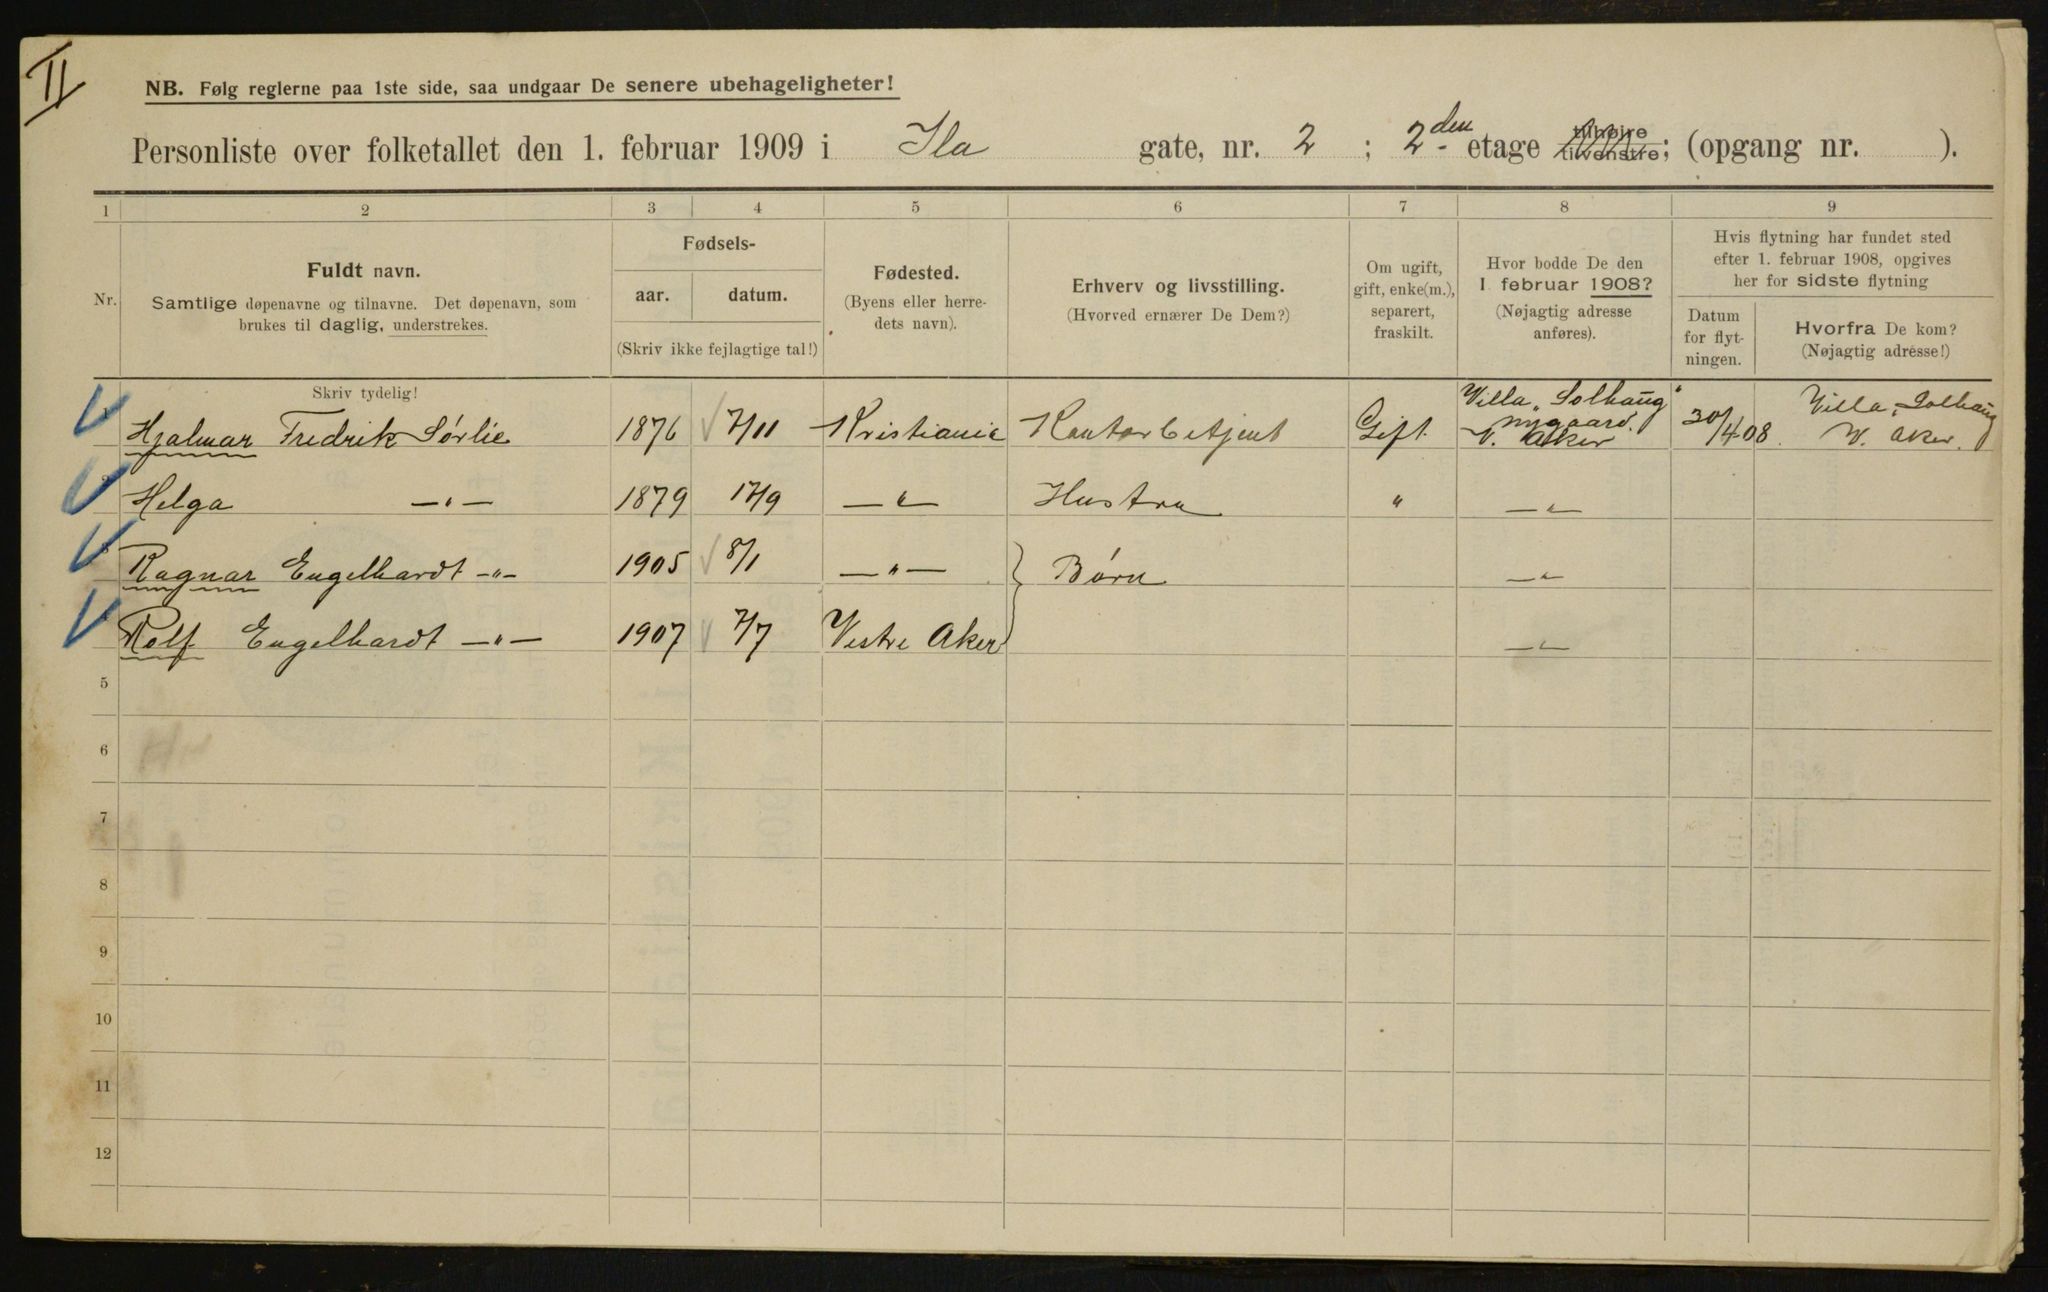 II
NB. Følg reglerne paa 1ste side, saa undgaar De senere ubehageligheter!
Personliste over folketallet den 1. februar 1909 i Ila gate, nr. 2 ; 2den etage tilhøire tilvenstre; (opgang nr. ).
1 2 3 4 5 6 7 8 9
Nr.
Fuldt navn.
Samtlige døpenavne og tilnavne. Det døpenavn, som
brukes til daglig, understrekes.
Fødsels-
aar. datum.
(Skriv ikke fejlagtige tal!)
Fødested.
(Byens eller herre-
dets navn).
Erhverv og livsstilling.
(Hvorved ernærer De Dem?)
Om ugift,
gift, enke(m.),
separert,
fraskilt.
Hvor bodde De den
1 februar 1908?
(Nøjagtig adresse
anføres).
Hvis flytning har fundet sted
efter 1. februar 1908, opgives
her for sidste flytning
Datum
for flyt-
ningen.
Hvorfra De kom?
(Nøjagtig adresse!)
Skriv tydelig!
Hjalmar Fredrik Sørlie 1876 7/11 Kristiania Kontorbetjent Gift. Villa „Solhaug" nygaard. V. Aker 30/4 08. Villa „Solhaug V. Aker.
Helga —"— 1879 17/9 —"— Hustru " —"—
Ragnar Engelhardt -"- 1905 8/1 —"— } Børn —"—
Rolf Engelhardt —"— 1907 7/7 Vestre Aker —"—
5
6
7
8
9
10
11
12